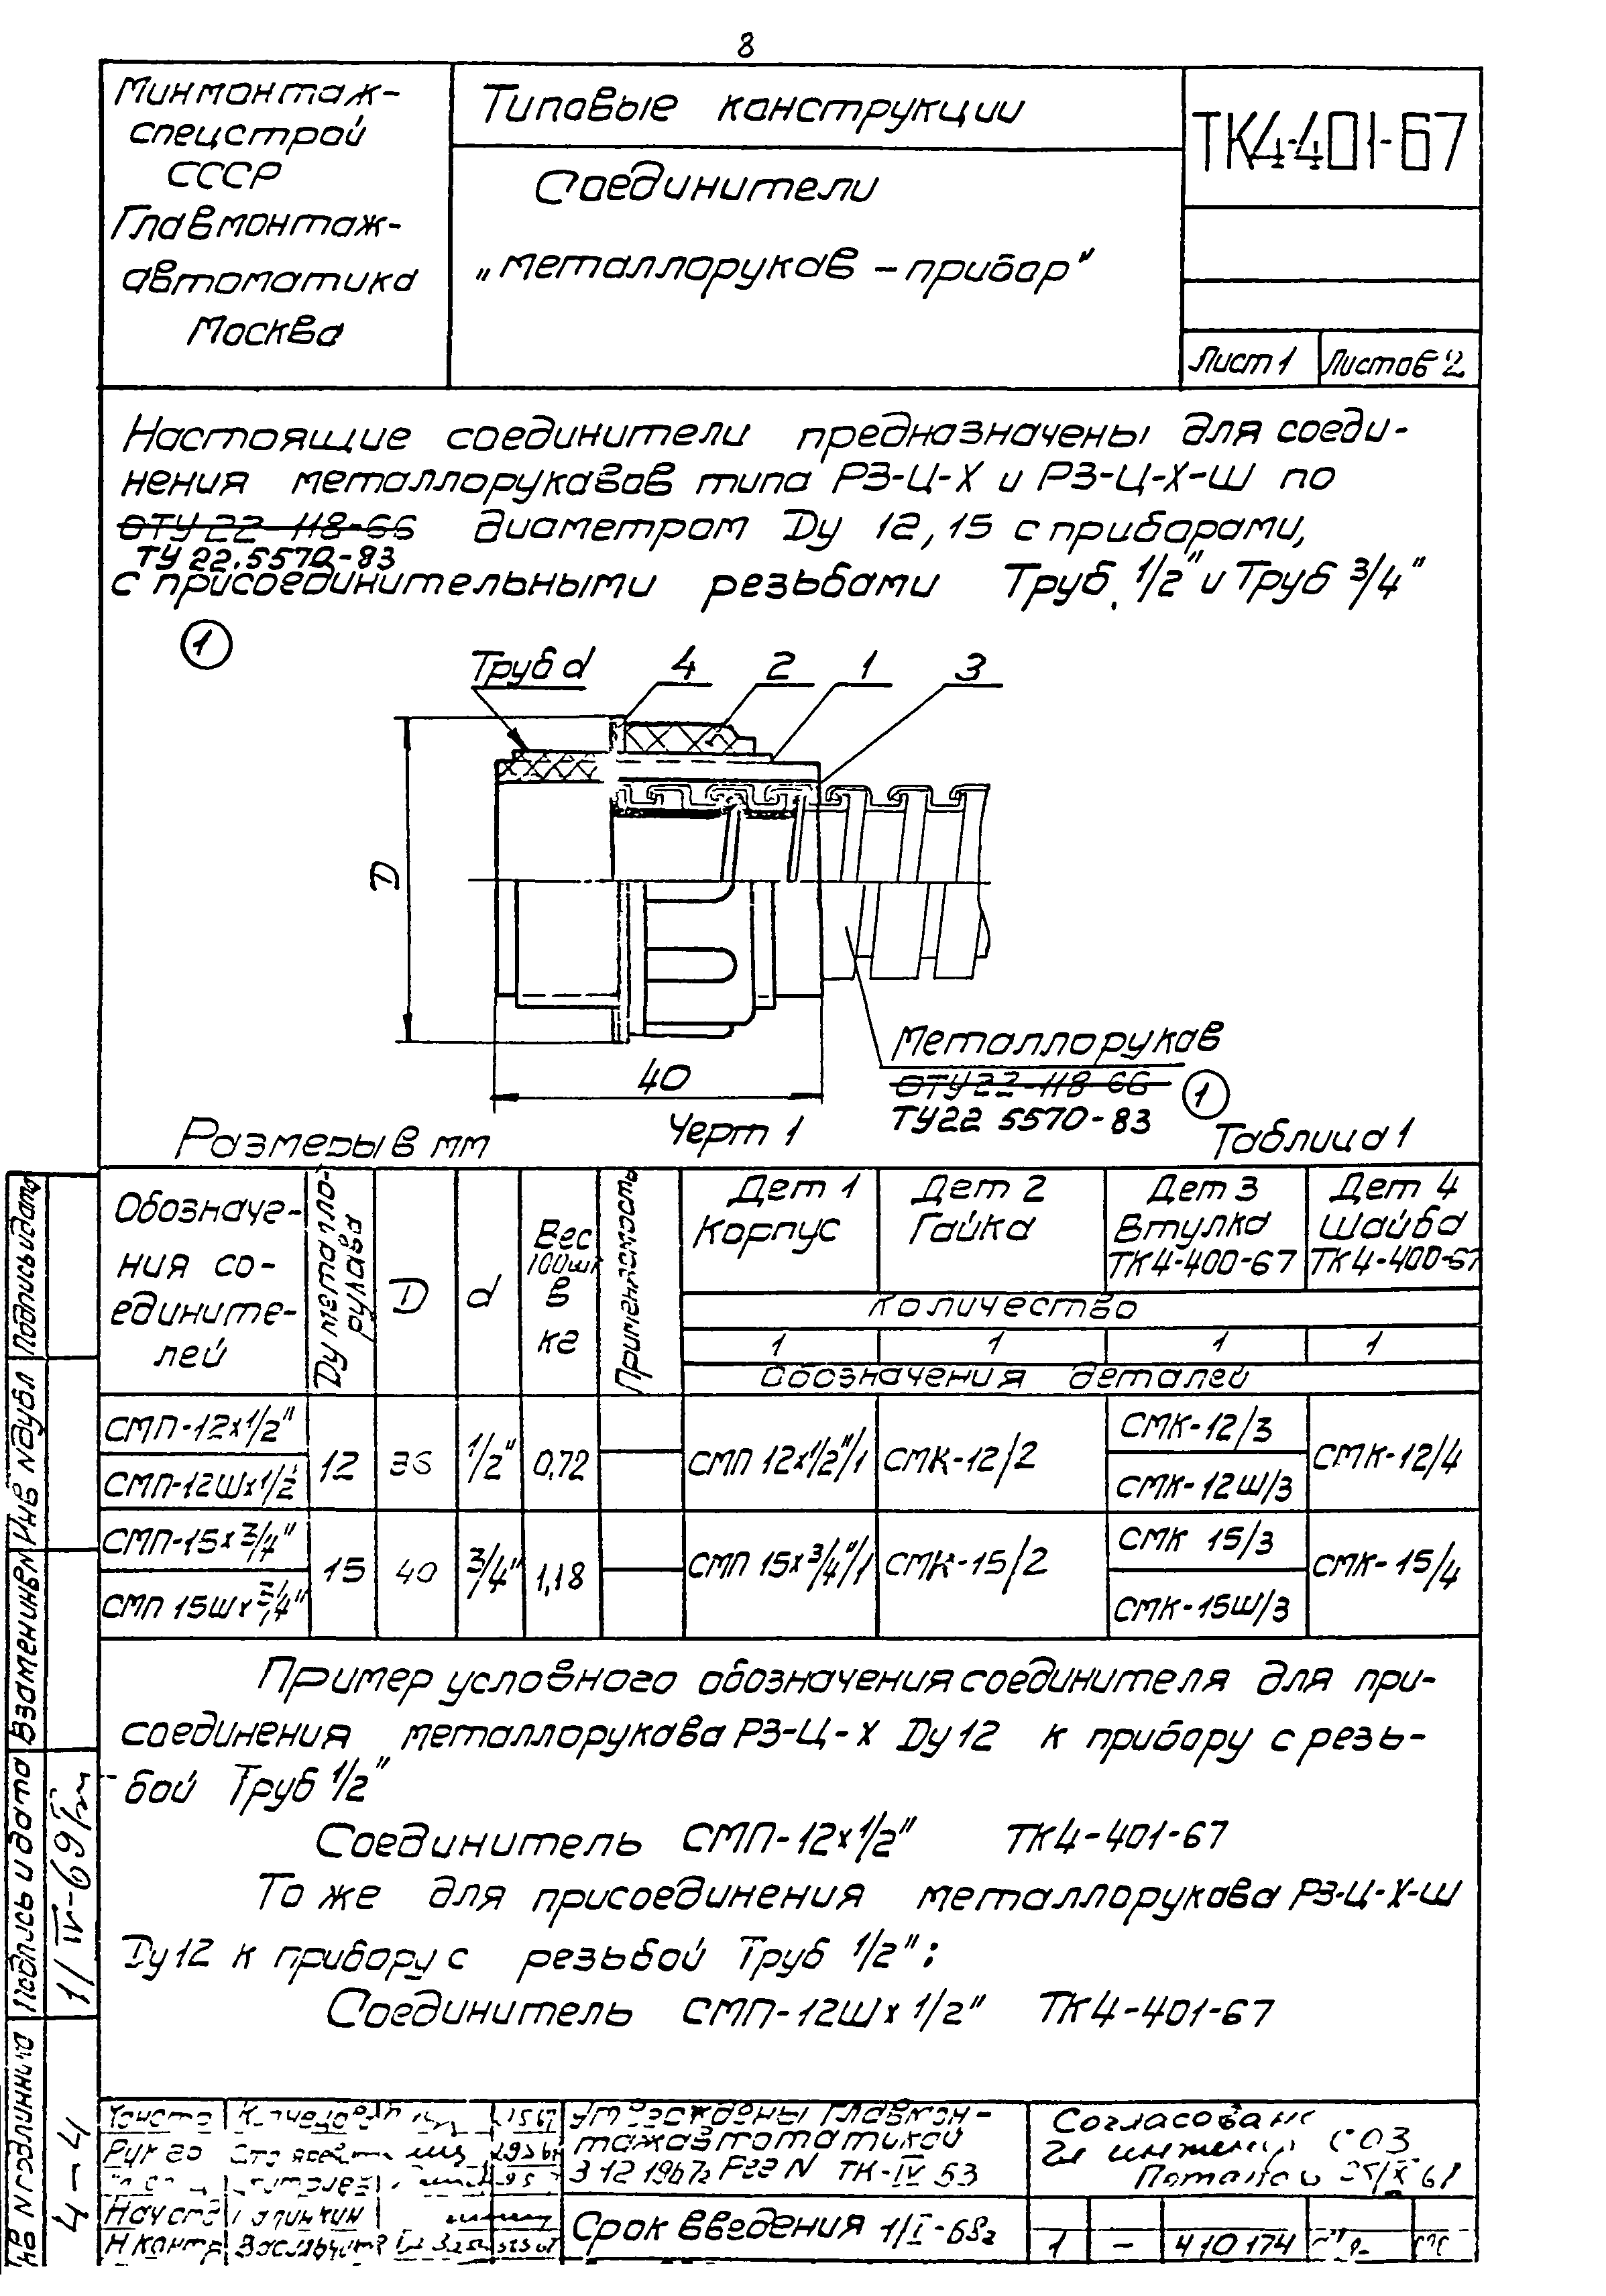 8
Минмонтаж-
спецстрой
СССР
Главмонтаж-
автоматика
Москва
Типовые конструкции
Соединители
„металлорукав – прибор"
ТК4-401-67
Лист 1
Листов 2
Настоящие соединители предназначены для соеди-
нения металлорукавов типа РЗ-Ц-Х и РЗ-Ц-Х-Ш по
ОТУ 22-118-66 диаметром Ду 12, 15 с приборами,
ТУ 22.5570-83
с присоединительными резьбами Труб. 1/2" и Труб 3/4"
1
Труб d
4
2
1
3
D
40
Металлорукав
ОТУ 22-118-66
1
ТУ22 5570-83
Размеры в мм
Черт 1
Таблица 1
Обозначе-
ния со-
едините-
лей
Ду металло-
рукава
D
d
Вес
100шт
в
кг
Применяемость
Дет 1
Корпус
Дет 2
Гайка
Дет 3
Втулка
ТК4-400-67
Дет 4
Шайба
ТК4-400-67
Количество
1
1
1
1
Обозначения деталей
СМП-12х1/2"
СМП-12Шх1/2
12
36
1/2"
0,72
СМП 12х1/2"/1
СМК-12/2
СМК-12/3
СМК-12Ш/3
СМК-12/4
СМП-15х3/4"
СМП 15Шх3/4"
15
40
3/4"
1,18
СМП 15х3/4"/1
СМК-15/2
СМК 15/3
СМК-15Ш/3
СМК-15/4
Пример условного обозначения соединителя для при-
соединения металлорукава РЗ-Ц-Х Ду 12 к прибору с резь-
бой Труб 1/2"
Соединитель СМП-12х1/2" ТК4-401-67
То же для присоединения металлорукава РЗ-Ц-Х-Ш
Ду 12 к прибору с резьбой Труб 1/2":
Соединитель СМП-12Шх1/2" ТК4-401-67
Подпись и дата
Инв №дубл
Взамен инв №
Подпись и дата
№ подлинника
4-4
Утверждены Главмон-
тажавтоматикой
3 12 1967г Рег N ТК-IV 53
Срок введения 1/I-68г
Согласовано
Гл инженер СОЗ
Рук
Н контр
1
–
410174